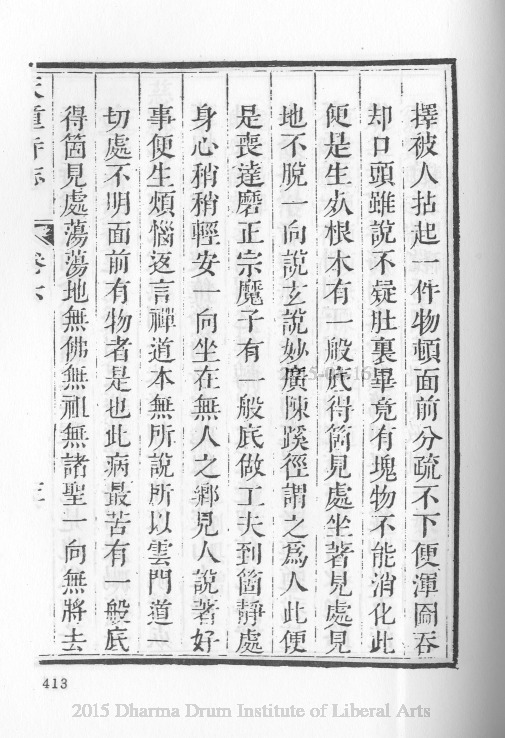 擇被人拈起一件物頓面前分疏不下便渾圇吞
却口頭雖說不疑肚裏畢竟有塊物不能消化此
便是生死根本有一般底得箇見處坐著見處見
地不脫一向說玄說妙廣陳蹊徑謂之爲人此便
是喪達磨正宗魔子有一般底做工夫到箇靜處
身心稍稍輕安一向坐在無人之鄉見人說著好
事便生煩惱返言禪道本無所說所以雲門道一
切處不明面前有物者是也此病最苦有一般底
得箇見處蕩蕩地無佛無祖無諸聖一向無將去
天童寺志 卷六 三
413
2015 Dharma Drum Institute of Liberal Arts